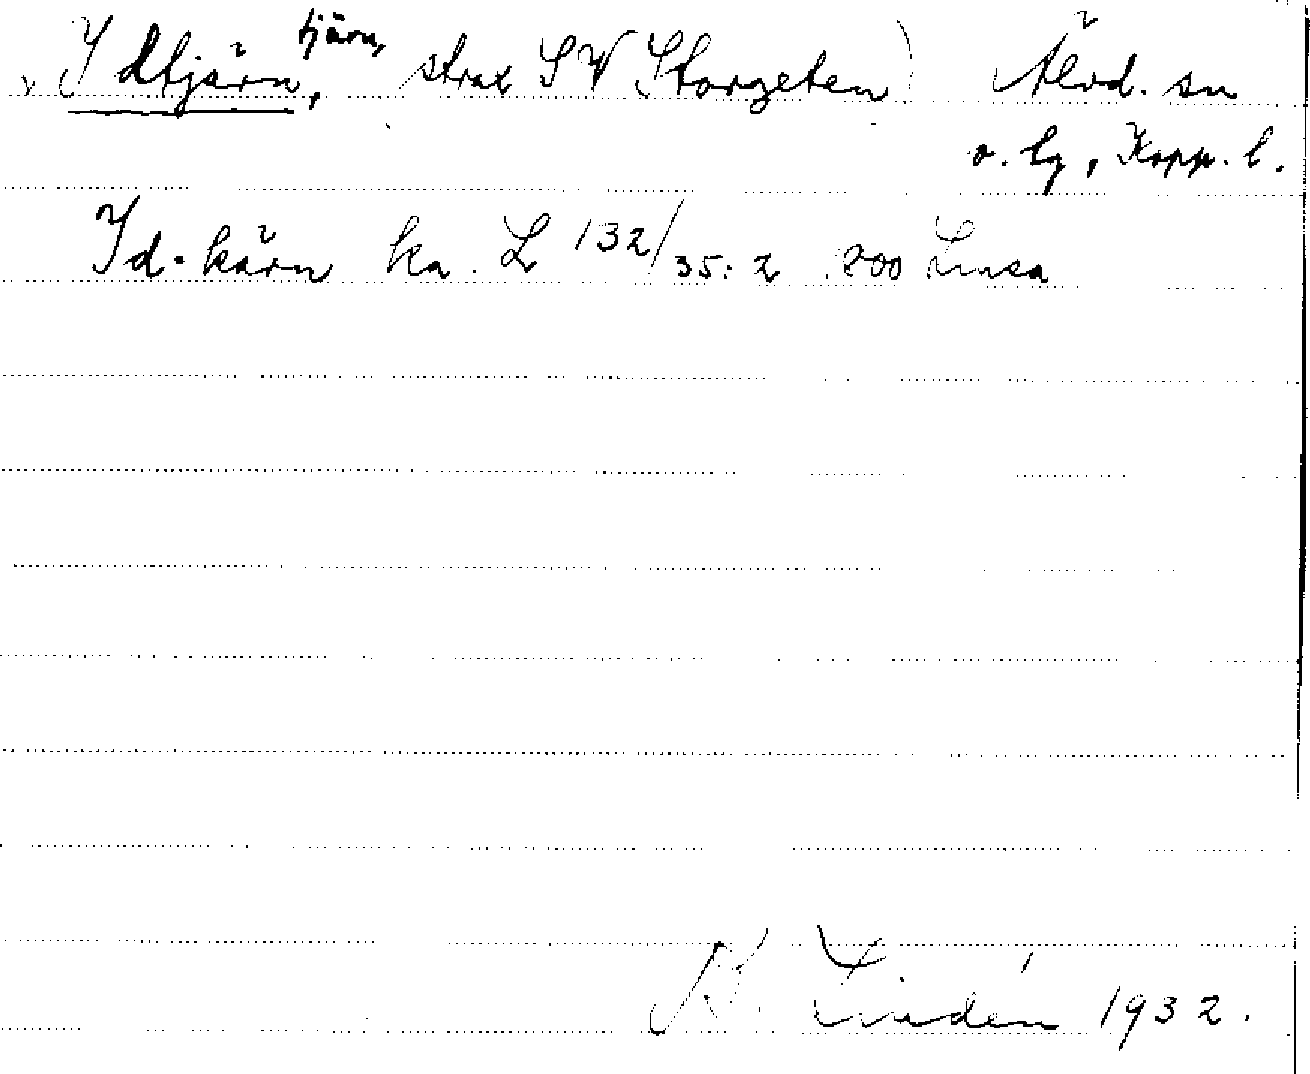 Idtjärn, tjärn, strax SV Storgeten) Älvd. sn
o. tg, Kopp. l.
Id-kärn ka. L 132/35:2 800 Linsa
K. Lindén 1932.